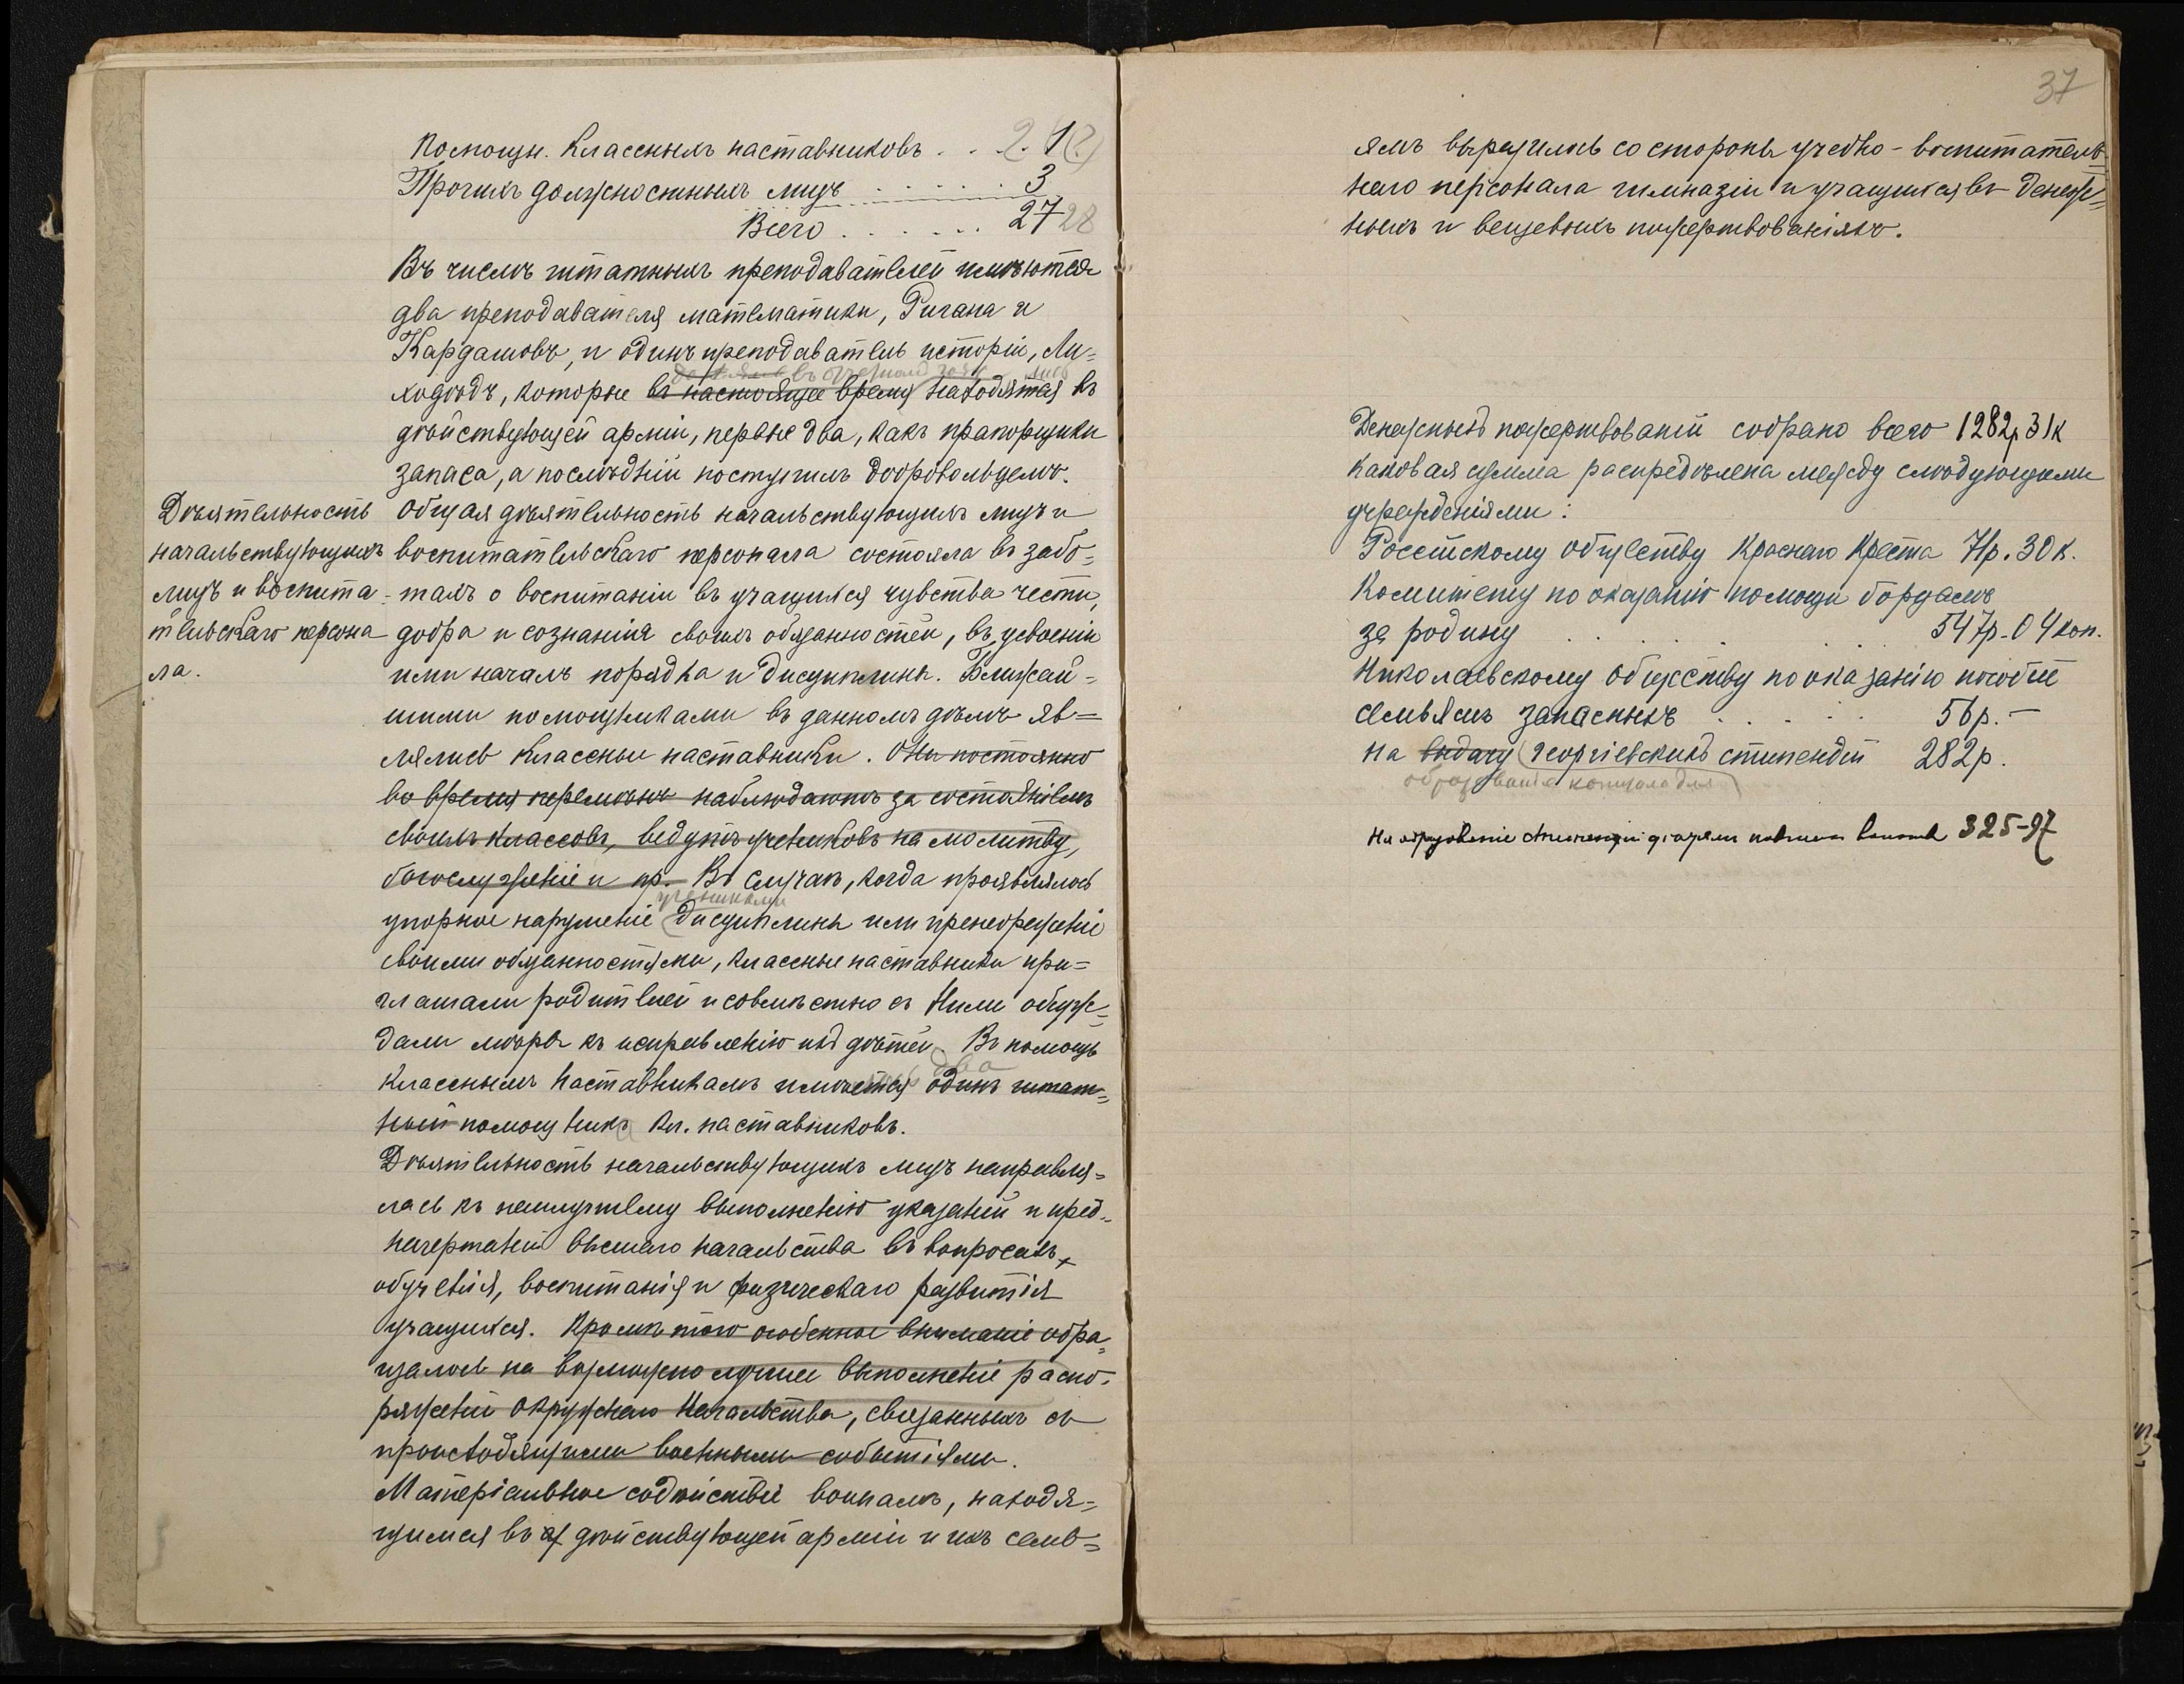 Помощн. Классныхъ наставниковъ . . 2. 1 (2)
Прочихъ должностныхъ лицъ . . . . . 3
Всего . . . . . . 27 28
Въ числѣ штатныхъ преподавателей имѣются
два преподавателя математики, Ригана и
Кардашовъ, и одинъ преподаватель исторіи, Ли=
въ отчетномъ году лись
ходѣдъ, которые въ настоящее время находятся въ
дѣйствующей арміи, первые два, какъ прапорщики
запаса, а послѣдній поступилъ добровольцемъ.
Дѣятельность
начальствующихъ
лицъ и воспита-
тельскаго персона
ла.
Общая дѣятельность начальствующихъ лицъ и
воспитательскаго персонала состояла въ забо=
тахъ о воспитаніи въ учащихся чувства чести,
добра и сознанія своихъ обязанностей, въ усвоеніи
ими началъ порядка и дисциплины. Ближай=
шими помощниками въ данномъ дѣлѣ яв=
лялись классные наставники. Они постоянно
во время перемѣнъ наблюдаютъ за состояніемъ
своихъ классовъ, ведутъ учениковъ на молитву,
богослуженіе и пр. Въ случаѣ, когда проявлялось
учениками
упорное нарушеніе дисциплины или пренебреженіе
своими обязанностями, классные наставники при=
глашали родителей и совмѣстно съ ними обсуж=
дали мѣры къ исправленію ихъ дѣтей. Въ помощь
два
Класснымъ наставникамъ имѣется одинъ штат=
ный помощникъ Кл. наставниковъ.
Дѣятельность начальствующихъ лицъ направля=
лась къ наилучшему выполненію указаній и пред=
начертаній высшаго начальства въ вопросахъ
обученія, воспитанія и физическаго развитія
учащихся. Кромѣ того особенное вниманіе обра=
щалось на возможно лучшее выполненіе распо=
ряженій Окружнаго Начальства, связанныхъ съ
происходящими военными событіями.
Матеріальное содѣйствіе воинамъ, находя=
щимся въ дѣйствующей арміи и ихъ семь=
37
ямъ выразилось со стороны учебно-воспитатель=
наго персонала гимназіи и учащихся въ денеж=
ныхъ и вещевыхъ пожертвованіяхъ.
Денежныхъ пожертвованій собрано всего 1282р 31к
каковая сумма распредѣлена между слѣдующими
учрежденіями:
Россійскому обществу Краснаго Креста 71р. 30к.
Комитету по оказанію помощи борцамъ
за родину . . . . . 547р.-04коп.
Николаевскому обществу по оказанію пособій
семьямъ запасныхъ . . . . . 56р.-
на выдачу Георгіевскихъ стипендій 282р.
образованіе капитала для
На образованіе стипендіи 325-97